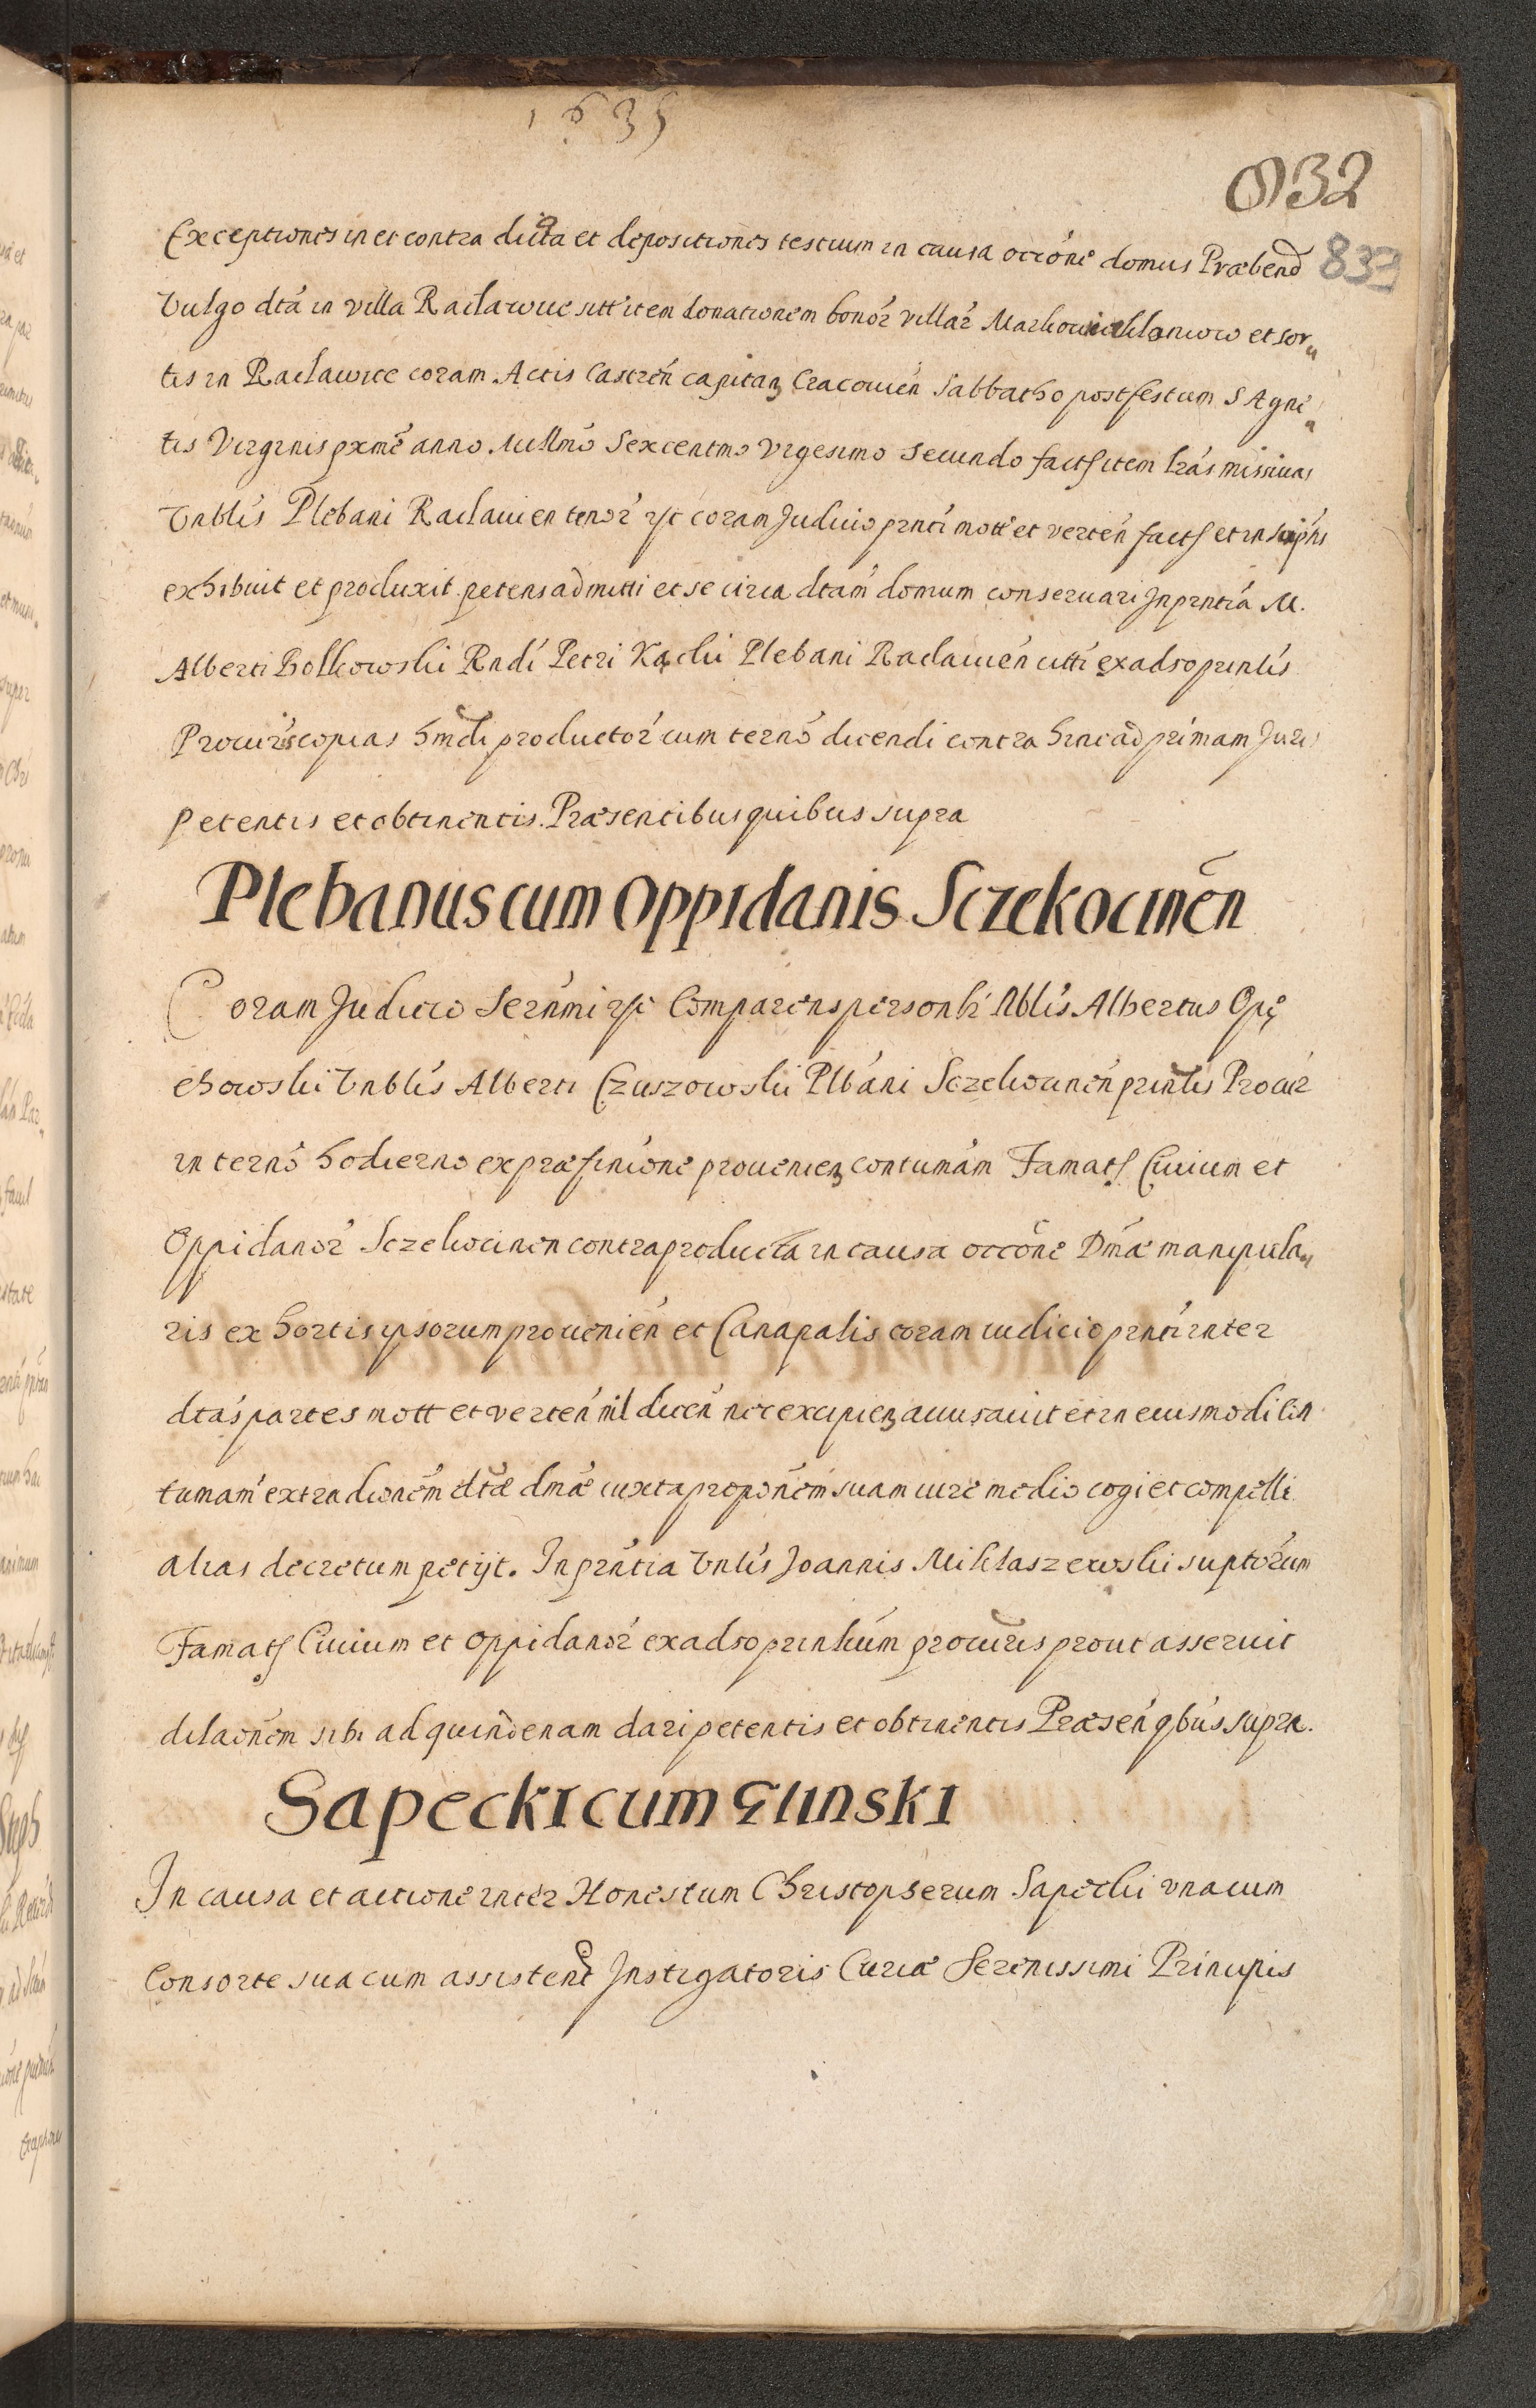 1635
832
833
Exceptiones in et contra dicta et depositiones testium in causa occõne domus Præbend
Vulgo dtá in villa Racławice sitt item donationem bonoŕ villaŕ et sor„
tis in Racławice coram Actis Castren̄ capitan Cracouien̄ Sabbatho post festum S Agne„
tis Virginis pxme anno Millmo Sexcentmo Vigesimo Secundo fact item lrás missiuas
Vnblis Plebani Racłauien tenoŕ coram Judicio prnti mott et verten̄ fact et in
exhibuit et produxit petens admitti et se circa dtam domum conseruari Jnprntia M.
Alberti Bolkowski Rndi Petri Kącki Plebani Racłauien̄ utti ex adso prinlis
Procuris copias hmdi productoŕ cum terno dicendi contra hinc ad primam Juris
petentis et obtinentis. Præsentibus quibus supra
Plebanus cum Oppidanis Sczekocinen̄
Coram Judicio Seruḿi Comparens personlr Nblis Albertus Opę
chowski Vnblis Alberti Czuszowski Plbáni Sczekocinen̄ prinlis Procur
in terno hodierno ex præfinione prouenien contumám Famat Ciuium et
Oppidanoŕ Sczekocinen contra producta in causa occõne Dmæ manipula„
ris ex hortis ipsorum prouenien̄ et Canapalis coram iudicio prnti inter
dtás partes mott et verten̄ nil dicen̄ nec excipien accusauit et in eiusmodi con
tumam extradionem dtæ dmæ iuxta proponem suam iure medio cogi et compelli
alias decretum petijt. In prntia Vnlis Joannis Miklaszewski suptorum
Famat Ciuium et Oppidanoŕ ex adso prinlium procuris prout asseruit
dilaonem sibi ad quindenam dari petentis et obtinentis Præsen̄ qbus supra.
Sapecki cum Glinski
In causa et actione inter Honestum Christopherum Sapecki vna cum
Consorte sua cum assistent Jnstigatoris Curiæ Serenissimi Principis